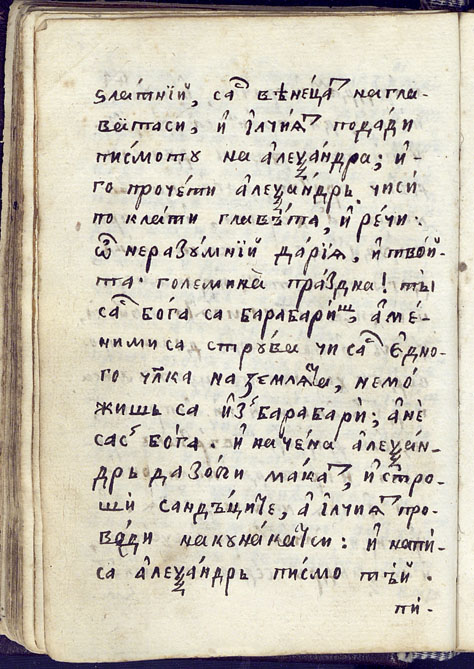 ѕла́тнїй, са̑с вѣне́цатъ на гла-
ва̀та си, и҆ і҆лчи́ѧтъ подади
писмото му на а҆леѯа́ндра; и҆-
го прочети а҆леѯа́ндръ чиси́
поклати глава́та, и҆ ре́чи:
ѽ неразꙋ́мнїй да́рїѧ, и҆ твой-
та голе́мика пра́здна! ты̀
са̑с бо́га са барабари́шъ, а҆ ме́-
ними са стрꙋ́ва чи са̑с є҆дно-
го чл҃ка на земле́та, не мо́-
жишь са и҆з барабари̑; а҆ не̑
сас бо́га. и҆ наче́на а҆леѯа́н-
дръ да зо́ги ма́ката, и҆ стро-
ши̑ санд​ѣ́щите, а҆ і҆лчи́ѧтъ про-
во́ди на кꙋна́ка си: и҆ напи-
са а҆леѯа́ндръ писмо тѣ́й.
пи-